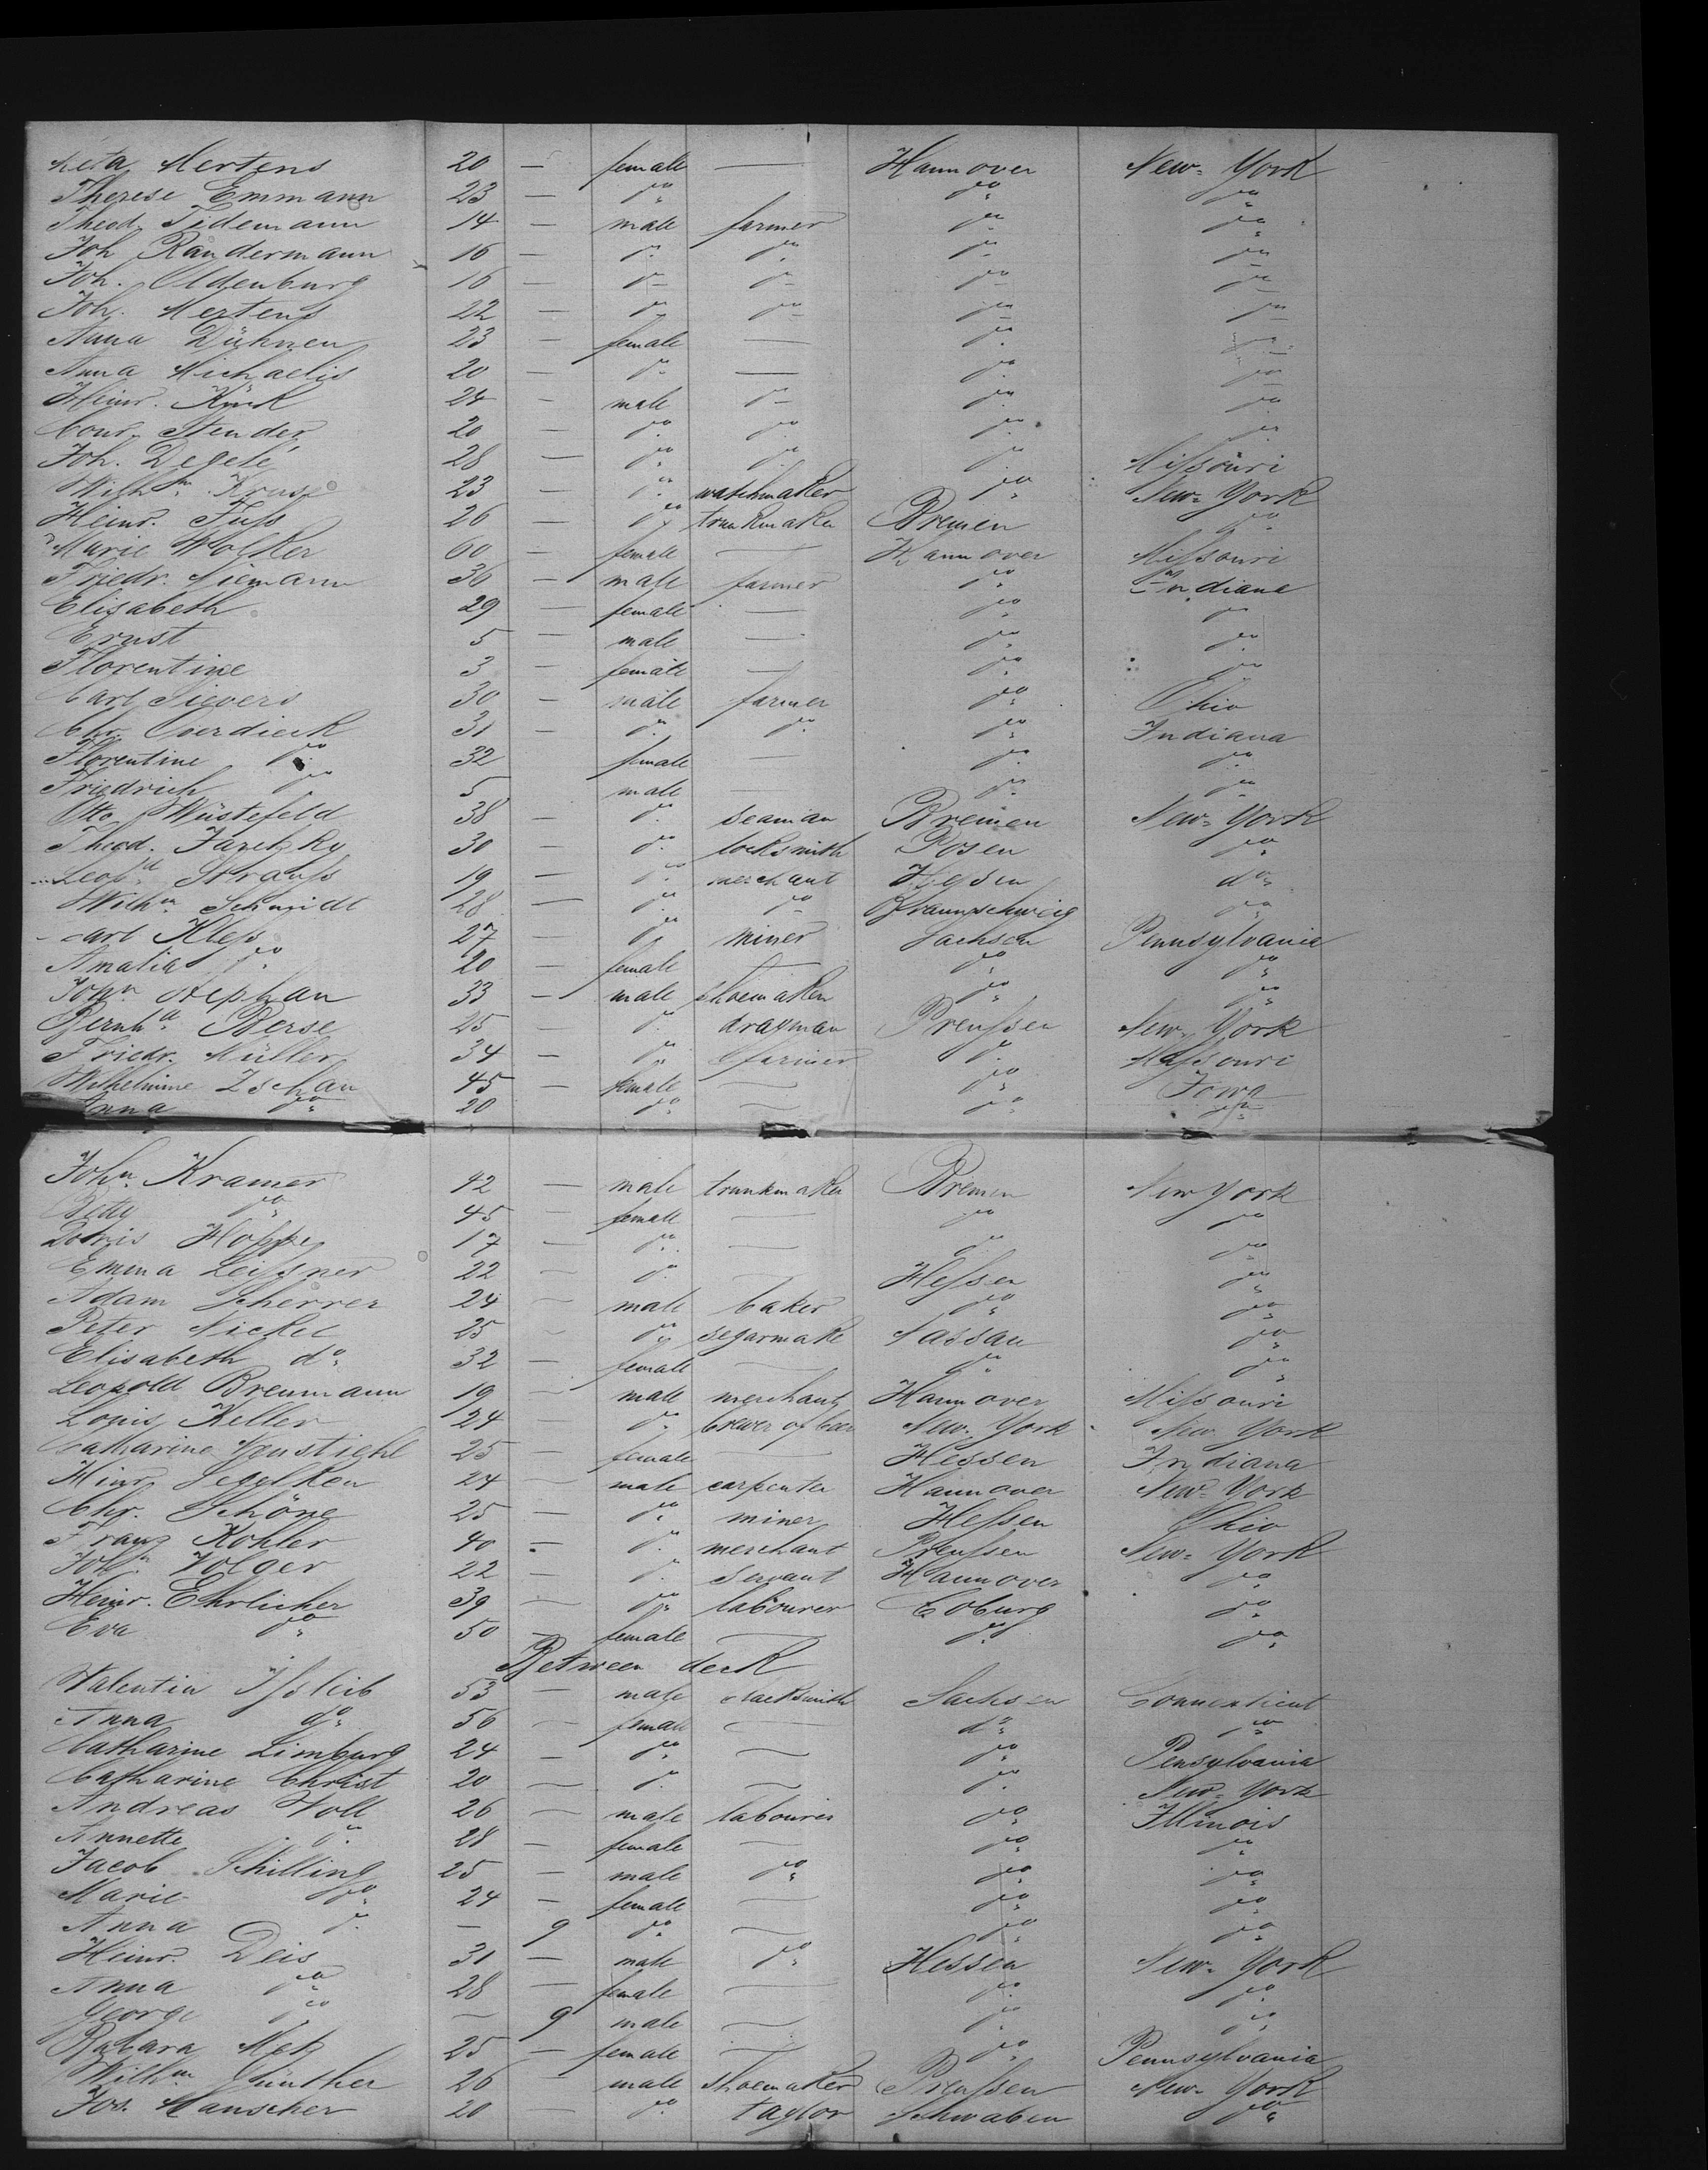 Meta Mertens 20 — female — Hannover New-York
Therese Emmann 23 — do do do
Theod. Tidemann 14 — male farmer do do
Joh Randermann 16 — do do do do
Joh. Oldenburg 16 — do do do do
Joh. Mertens 22 — do do do do
Anna Dühnen 23 — female — do do
Anna Michaelis 20 — do — do do
Heinr. Kück 24 — male do do do
Conr. Stender 20 — do do do do
Joh. Degelé 28 — do do do Missouri
Wilhm Kruse 23 — do watchmaker do New-York
Heinr. Fuss 26 — do trunkmaker Bremen do
Marie Wolker 60 — female — Hannover Missouri
Friedr. Niemann 36 — male farmer do Indiana
Elisabeth 29 — female — do do
Ernst 5 — male — do do
Florentine 3 — female — do do
Carl Sievers 30 — male farmer do Ohio
Chr. Overdieck 31 — do do do Indiana
Florentine do 32 female — do do
Friedrich do 5 male — do do
Otto Wüstefeld 38 — do seaman Bremen New-York
Theod. Jaretzky 30 — do locksmith Posen do
Leopd Strauss 19 — do merchant Hessen do
Wilhm Schmidt 28 — do do Braunschweig do
Carl Kless 27 — do miner Sachsen Pennsylvania
Amalia do 20 — female — do do
John Stephan 33 — male shoemaker do do
Bernhd Berse 25 — do drayman Preussen New-York
Friedr. Müller 34 — do farmer do Missouri
Wilhelmine Zschau 45 — female — do Iowa
Anna do 20 do — do do
John Kramer 42 — male trunkmaker Bremen New York
Betty do 45 — female — do do
Dorris Hoppe 17 — do — do do
Emma Leissner 22 — do — Hessen do
Adam Scherrer 24 — male baker do do
Peter Nickel 25 — do segarmake Nassau do
Elisabeth do 32 — female — do do
Leopold Breumann 19 — male merchant Hannover Missouri
Louis Keller 24 — do brewer of beer New-York New York
Catharine 25 — female — Hessen Indiana
Hinr. Segelken 24 — male carpenter Hannover New-York
Chr. Schöne 25 — do miner Hessen Ohio
Franz Kohler 40 — do merchant Preussen New-York
John Volger 22 — do servant Hannover do
Heinr. Ehrlicher 39 — do labourer Coburg do
Eva do 50 — female — do do
Between deck
Valentin Issleib 53 — male blacksmith Sachsen Connecticut
Anna do 56 — female — do do
Catharine Limburg 24 — do — do Pensylvania
Catharine Christ 20 — do — do New-York
Andreas Voll 26 — male labourer do Illinois
Annette do 28 — female — do do
Jacob Schilling 25 — male do do do
Marie do 24 — female — do do
Anna do — 9 do — do do
Heinr. Deis 31 — male do Hessen New-York
Anna do 28 — female — do do
George do — 9 male — do do
Babara Metz 25 — female — do Pennsylvania
Wilhm Günther 26 — male shoemaker Preussen New-York
Jos. Manscher 20 — do taylor Schwaben do